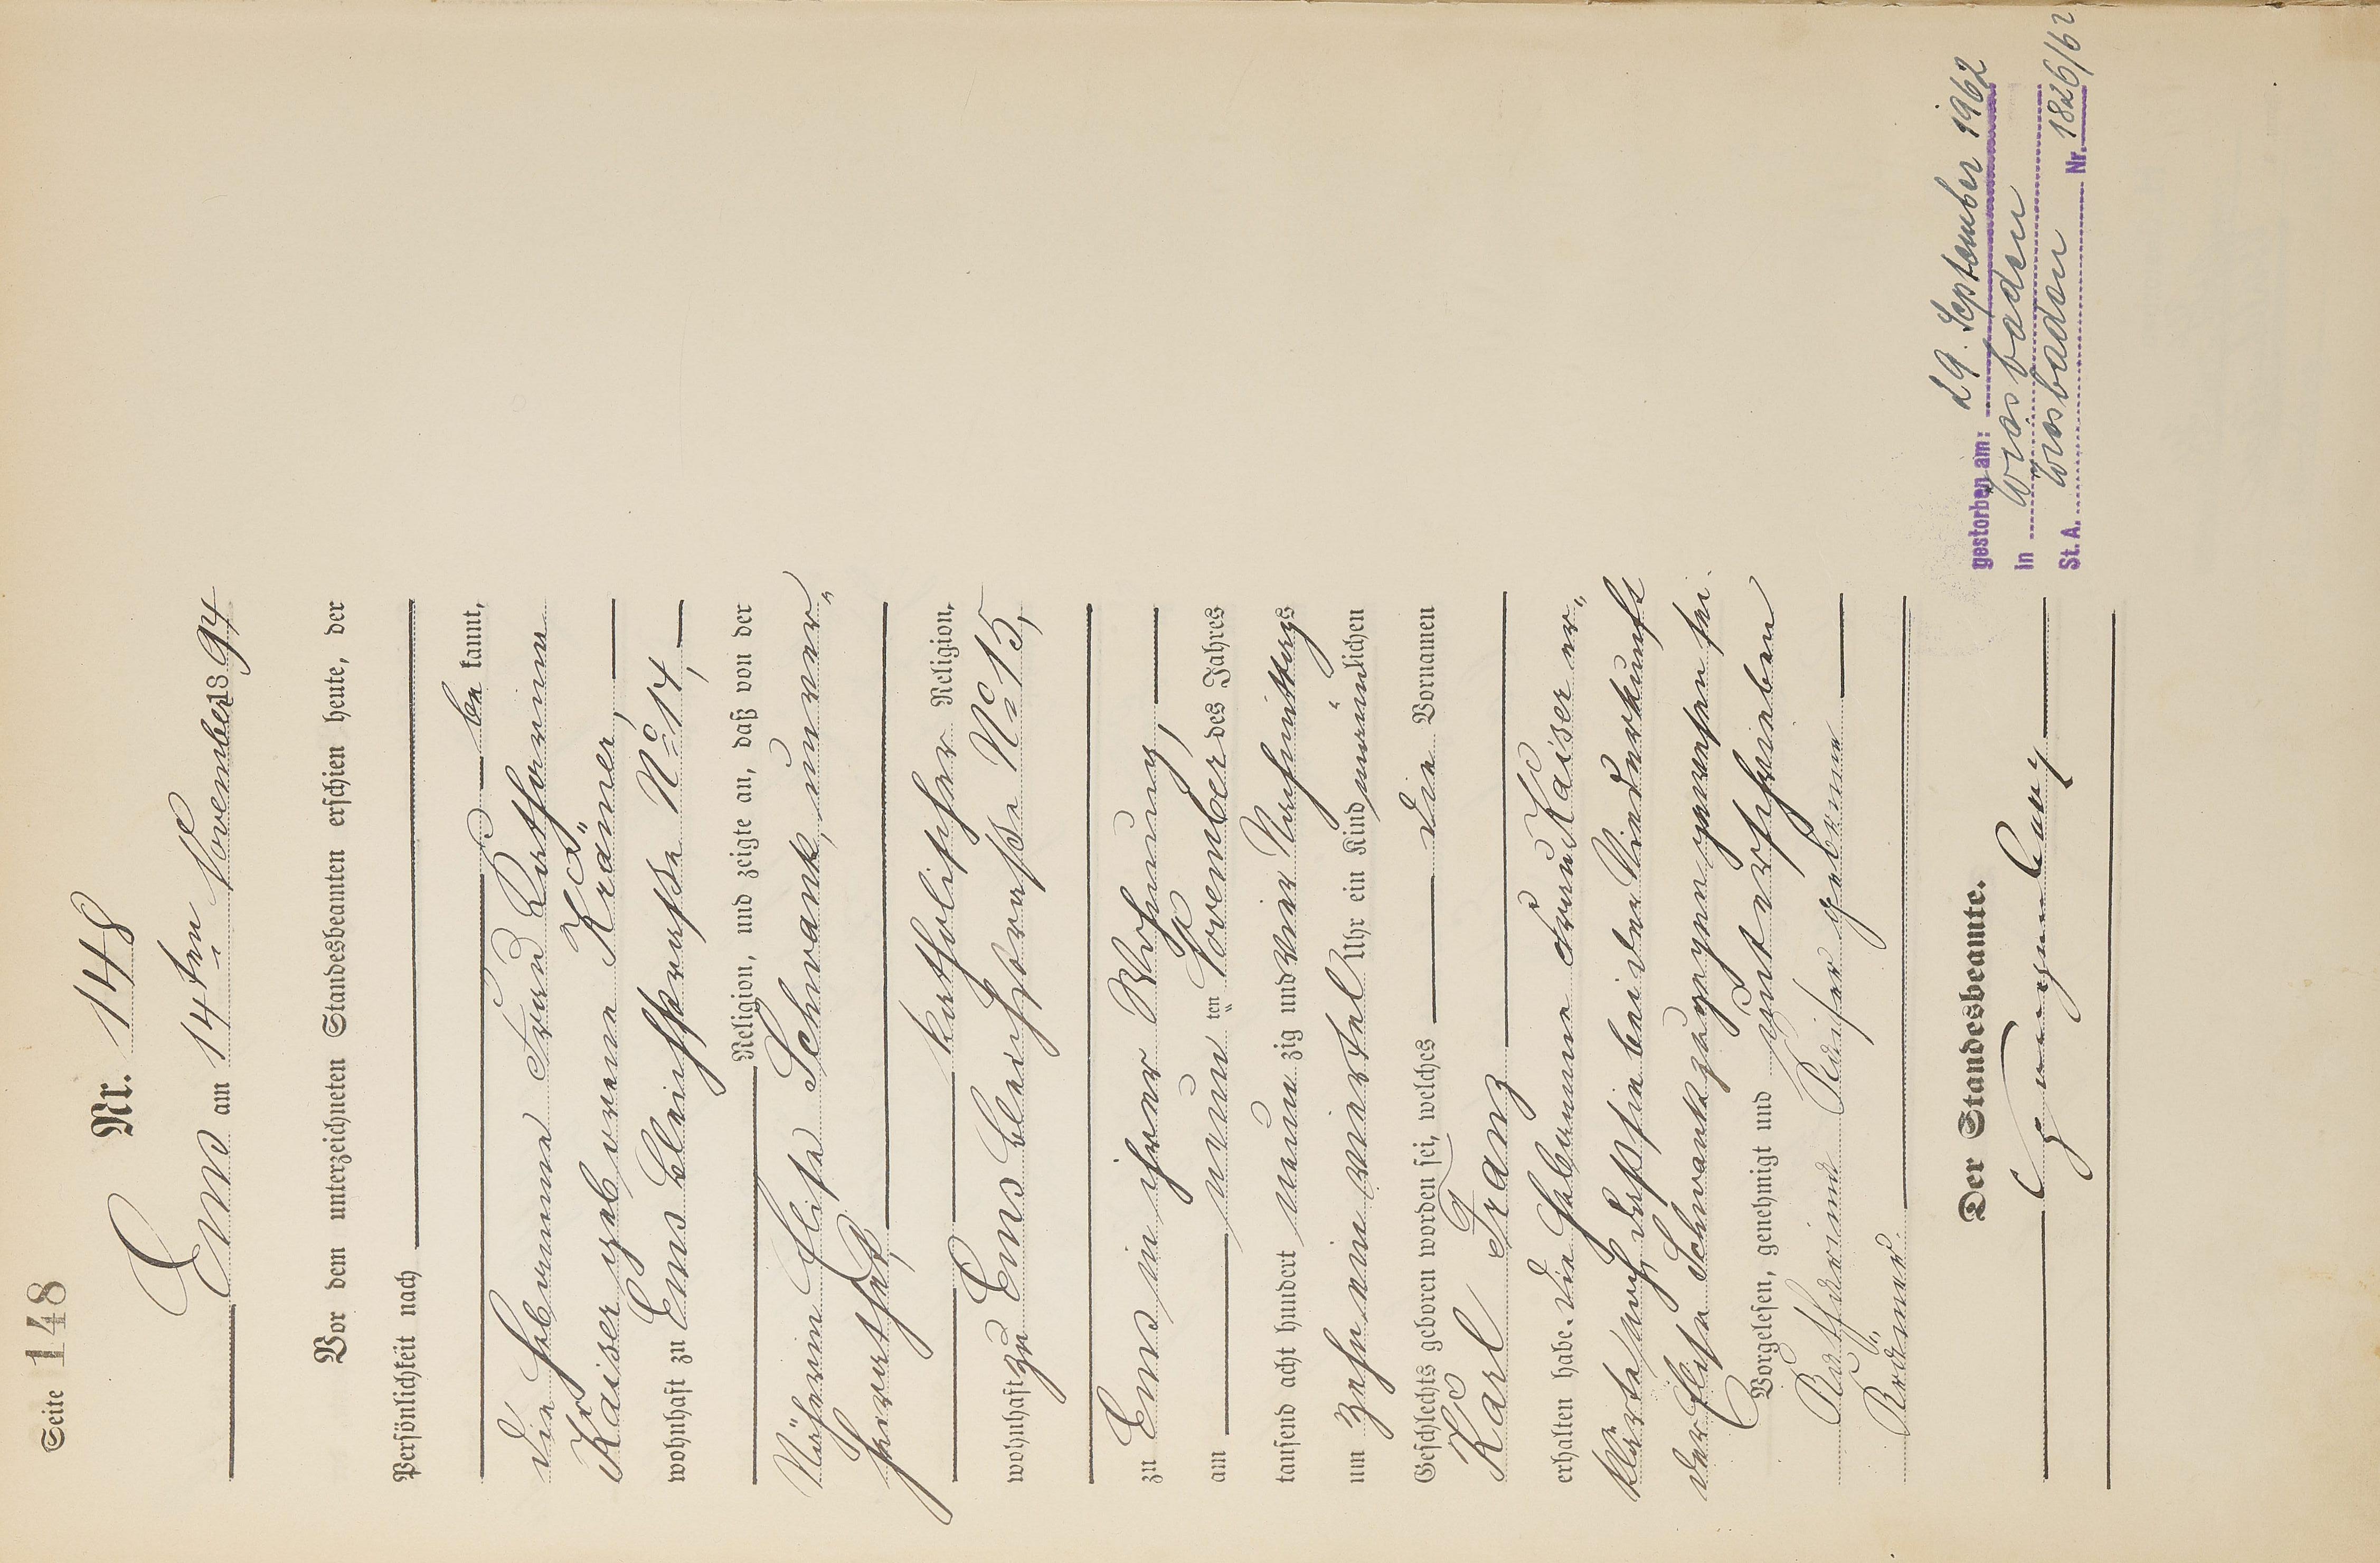 Seite 148
Nr. 148
Ems am 14ten November 1894
Vor dem unterzeichneten Standesbeamten erschien heute, der
Persönlichkeit nach
be kannt,
die Hebamme Frau Katharina
Kaiser geborene Krämer,
wohnhaft zu Ems Bleichstraße No 14,
Religion, und zeigte an, daß von der
Näherin Elise Schwank, unver„
heirathet,
katholischer Religion,
wohnhaft zu Ems Bleichstraße No 15,
zu Ems in ihrer Wohnung,
am neun ten November des Jahres
tausend acht hundert neun zig und vier Nachmittags
um zehn ein viertel Uhr ein Kind männlichen
Geschlechts geboren worden sei, welches die Vornamen
Karl Franz
erhalten habe. Die Hebamme Frau Kaiser er„
klärte auch daß sie bei der Niederkunft
der Elise Schwank zugegen gewesen sei.
Vorgelesen, genehmigt und unterschrieben
Katharina Kaiser geborne
Krämer.
Der Standesbeamte.
gestorben am: 29. September 1962
in Wiesbaden
St. A. Wiesbaden Nr. 1826/62